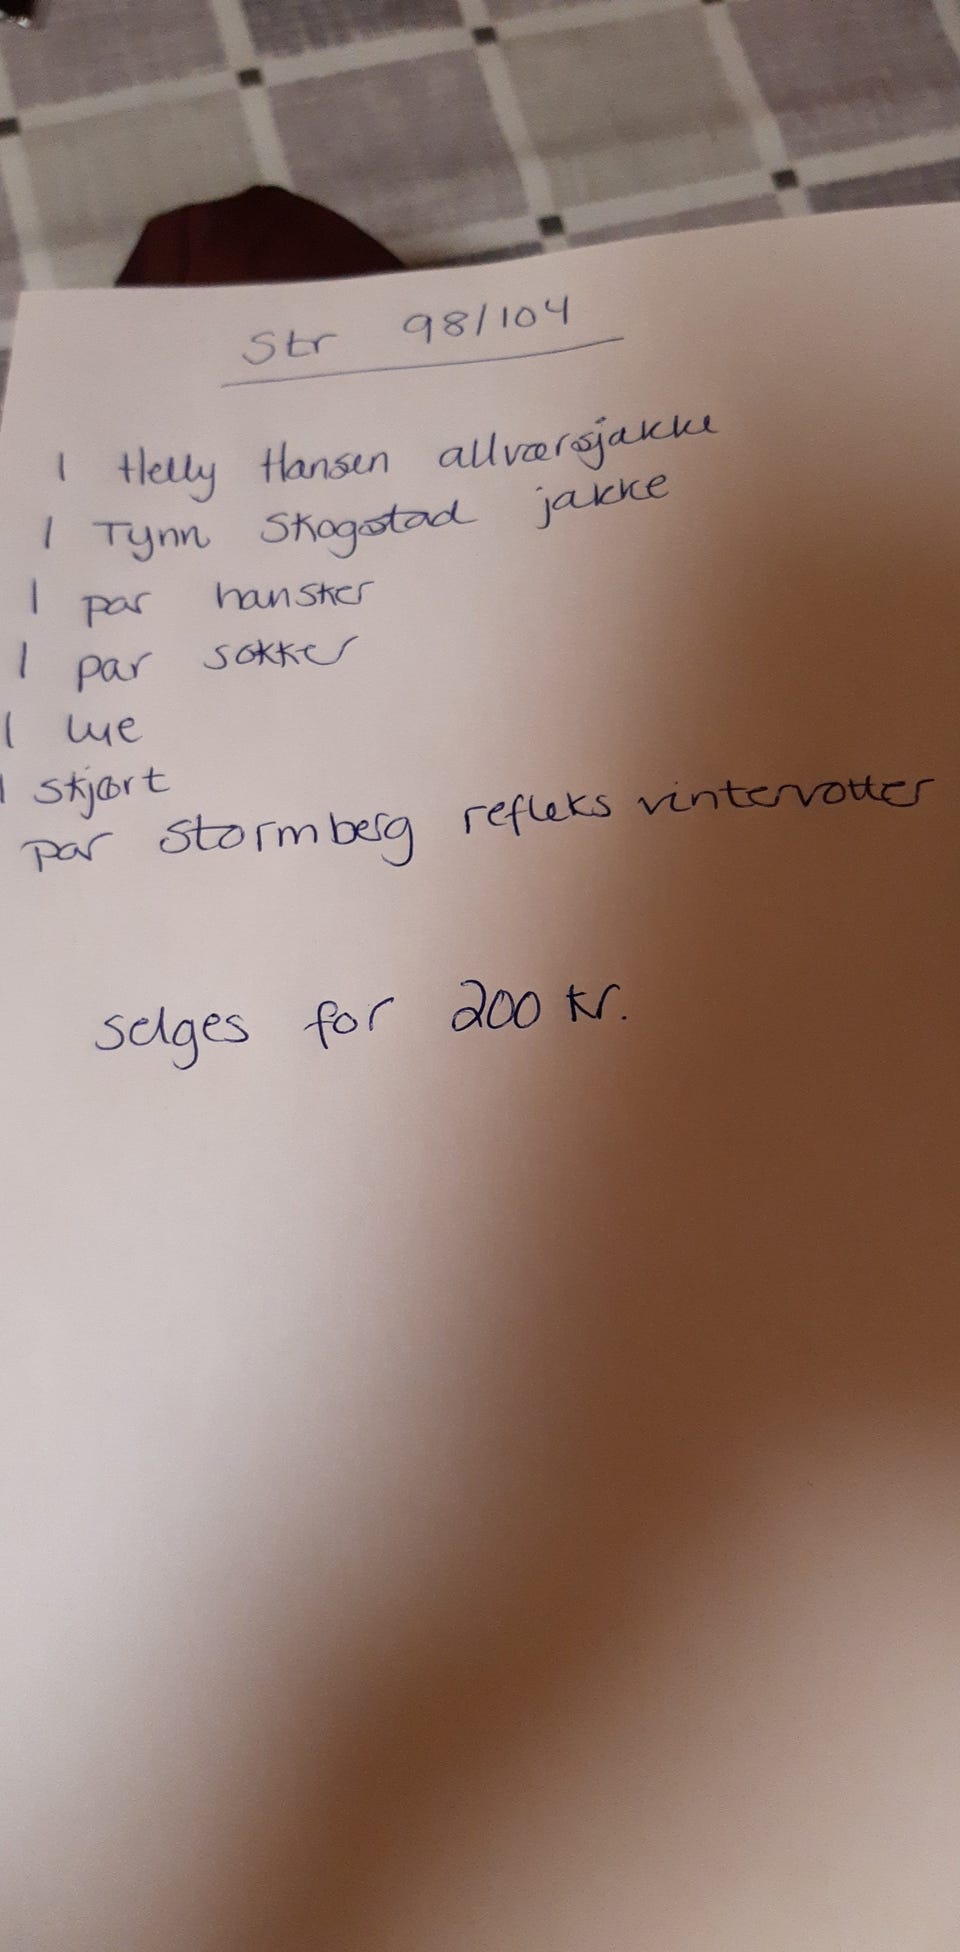 Str 98/104
1 Helly Hansen allværsjakke
1 Tynn Skogstad jakke
1 par hansker
1 par sokker
1 lue
1 skjørt
par Stormberg refleks vintervotter
selges for 200 kr.